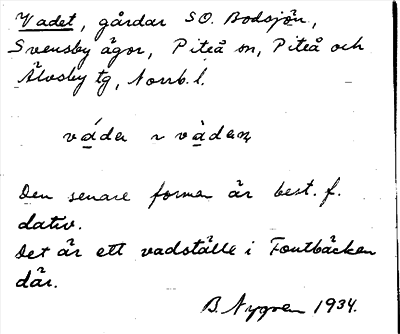 Vadet, gårdar SO. Bodsjön,
Svensby ägor, Piteå sn, Piteå och
Älvsby tg, Norrb. l.
váda ~ vàdaɴ
Den senare formen är best. f.
dativ.
Det är ett vadställe i Fontbäcken
där.
B. Nygren 1934.